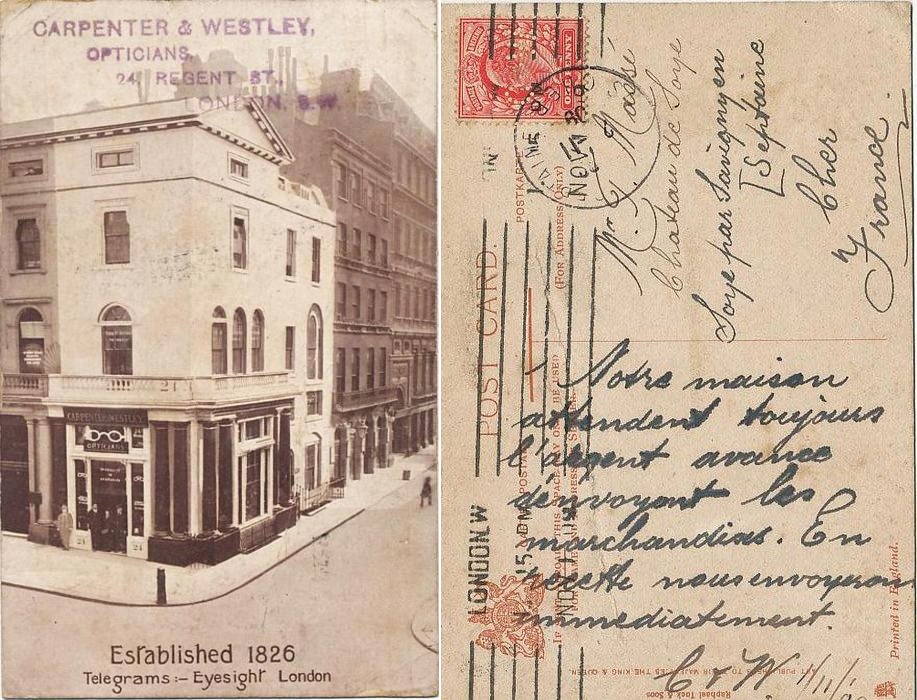 CARPENTER & WESTLEY,
OPTICIANS,
24, REGENT ST.,
LONDON. S.W.
24
CARPENTER & WESTLEY
OPTICIANS
24
24
Established 1826
Telegrams:– Eyesight London
POST CARD.
POSTKARTE
(For Address Only)
ONE PENNY
NOV
LONDON.W
NOV 11
Mr
Chateau de Soye
Soye par Savigny en
Septaine
Cher
France
Notre maison
attendent toujours
l'argent avance
d'envoyant les
marchandias. En
nous envoyerons
immediatement.
C & W
Printed in England.
ART PUBLISHERS TO THEIR MAJESTIES THE KING & QUEEN.
Raphael Tuck & Sons